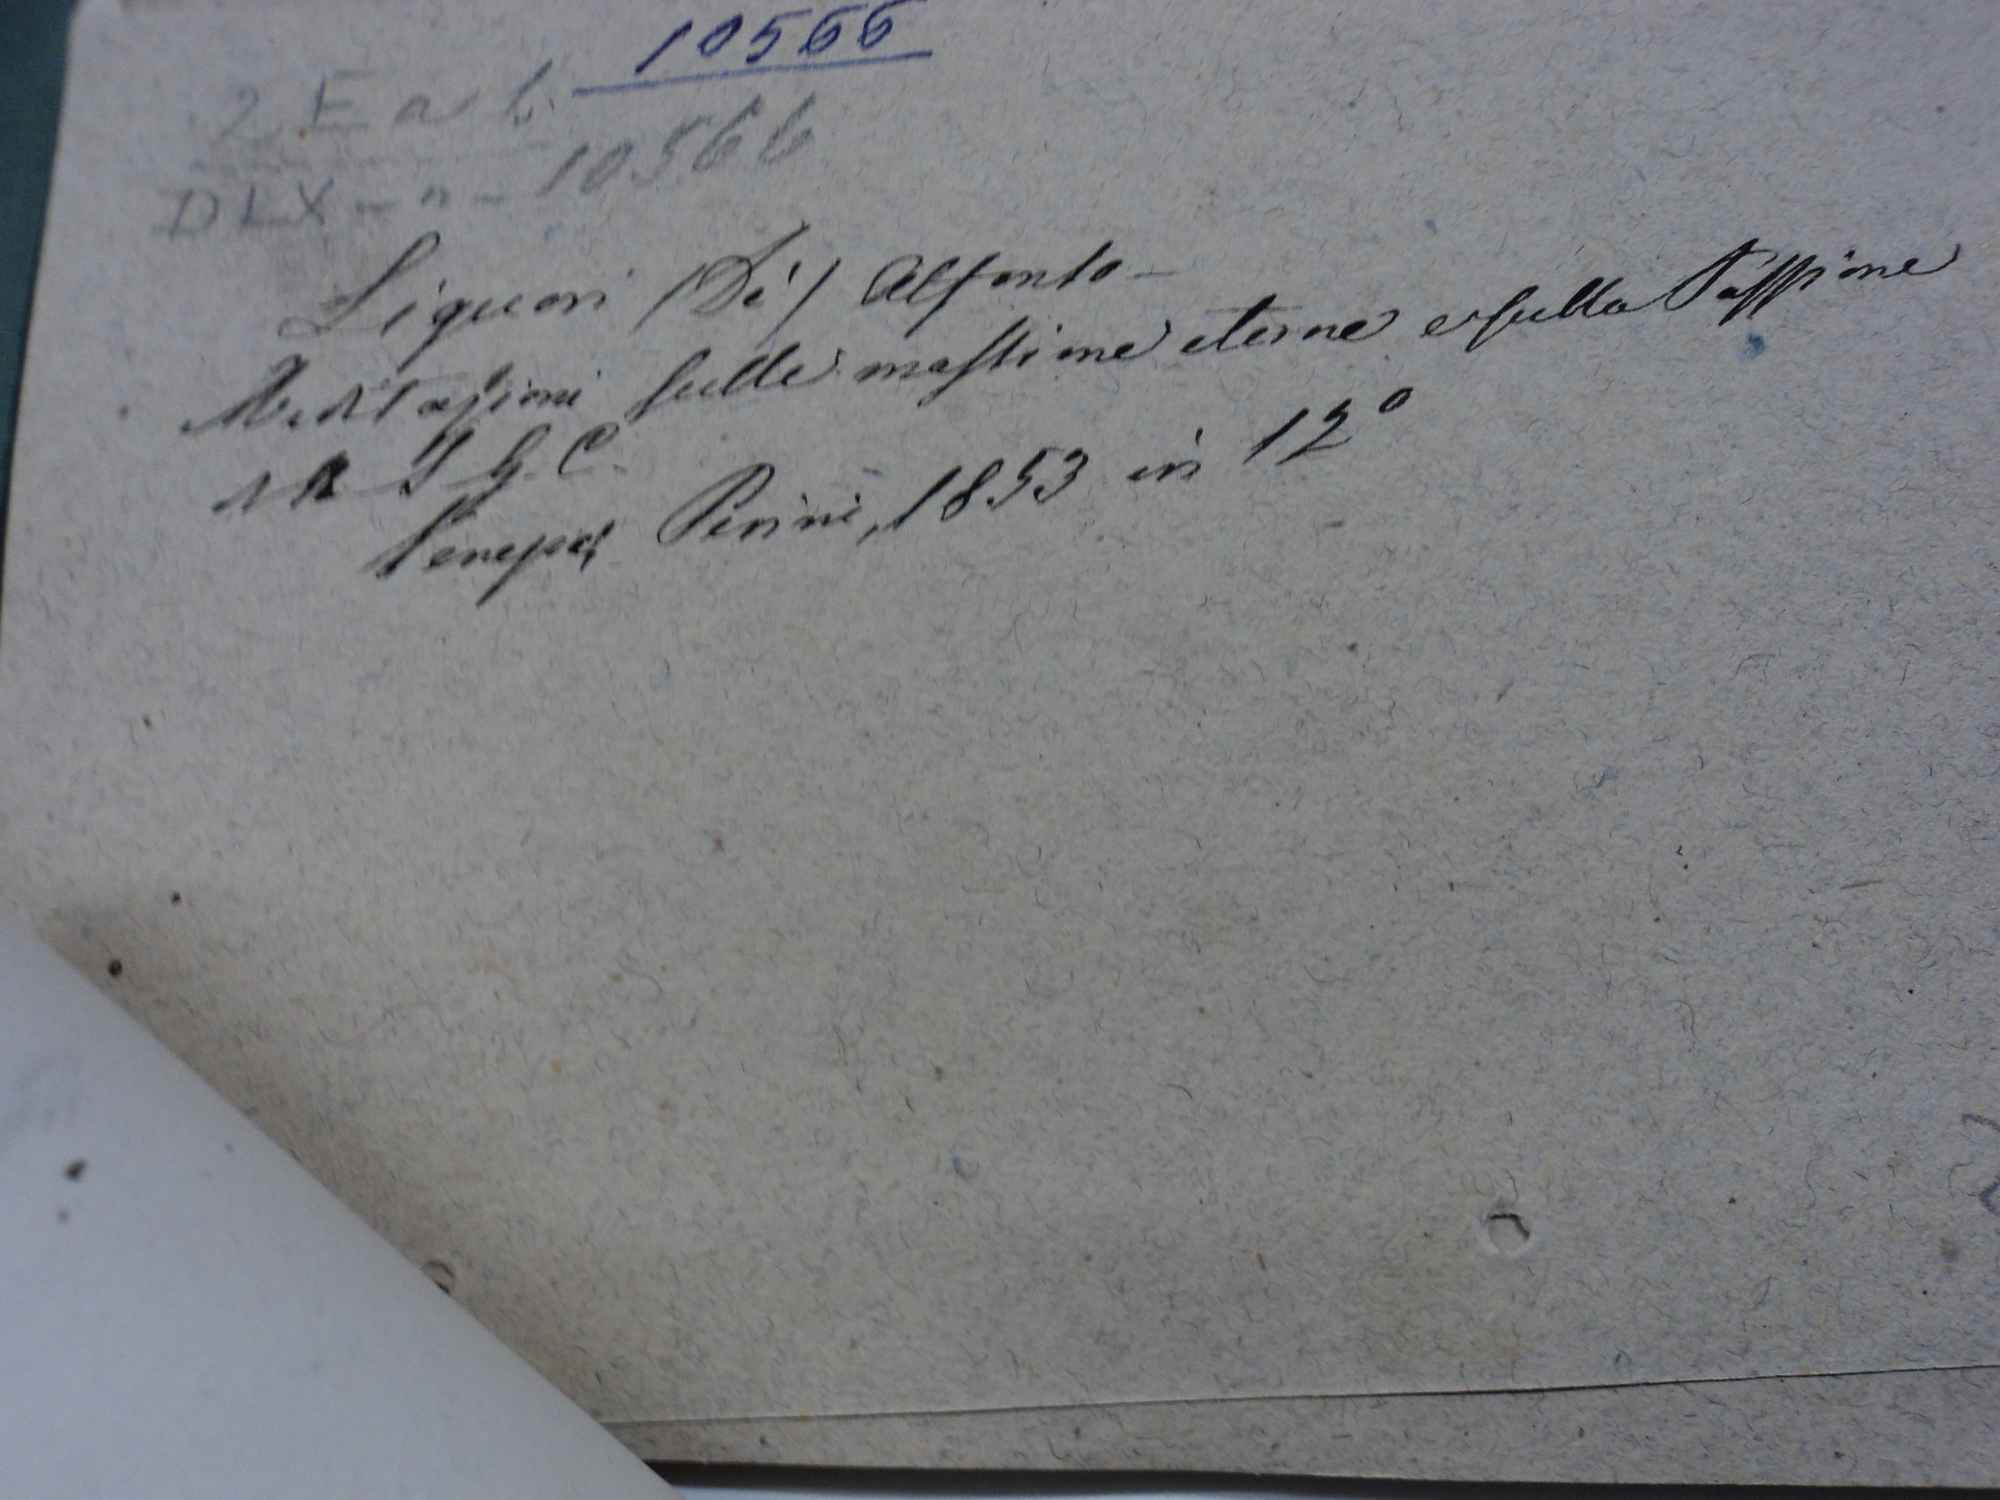 10566
2 E a b.
DLX - n - 10566
Liguori (De') Alfonso -
Meditazioni sulle massime eterne e sulla Passione
di N. S. G. C.
Venezia, Perini, 1853 in 12°